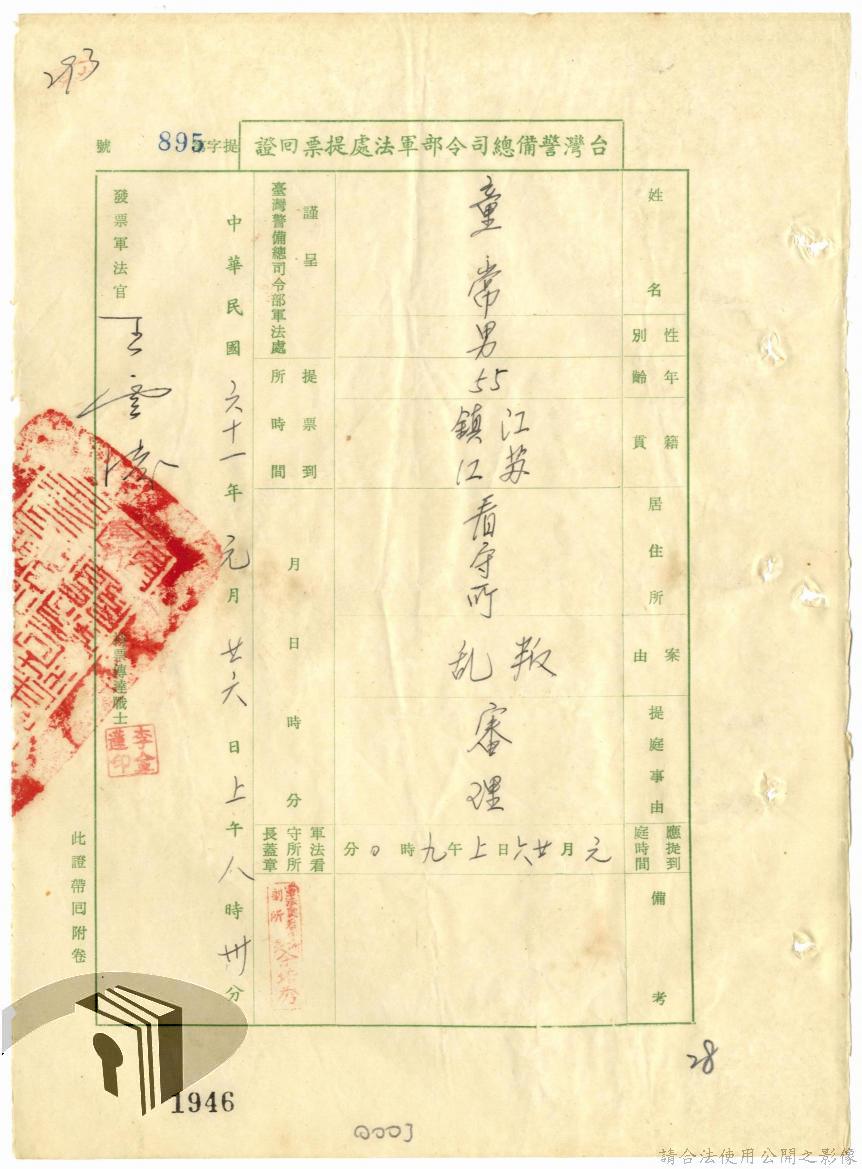 293
台灣警備總司令部軍法處提票回證
提字第895號
姓名
童常
性別
男
年齡
55
籍貫
江蘇
鎮江
居住所
看守所
案由
叛乱
提庭事由
審理
應提到庭時間
元月廿六日上午九時0分
備考
謹呈
臺灣警備總司令部軍法處
提票到所時間
月日時分
軍法看守所所長蓋章
中華民國六十一年元月廿六日上午八時卅分
發票軍法官
王雲濤
執票傳達戰士
此證帶回附卷
28
1946
0003
請合法使用公開之影像